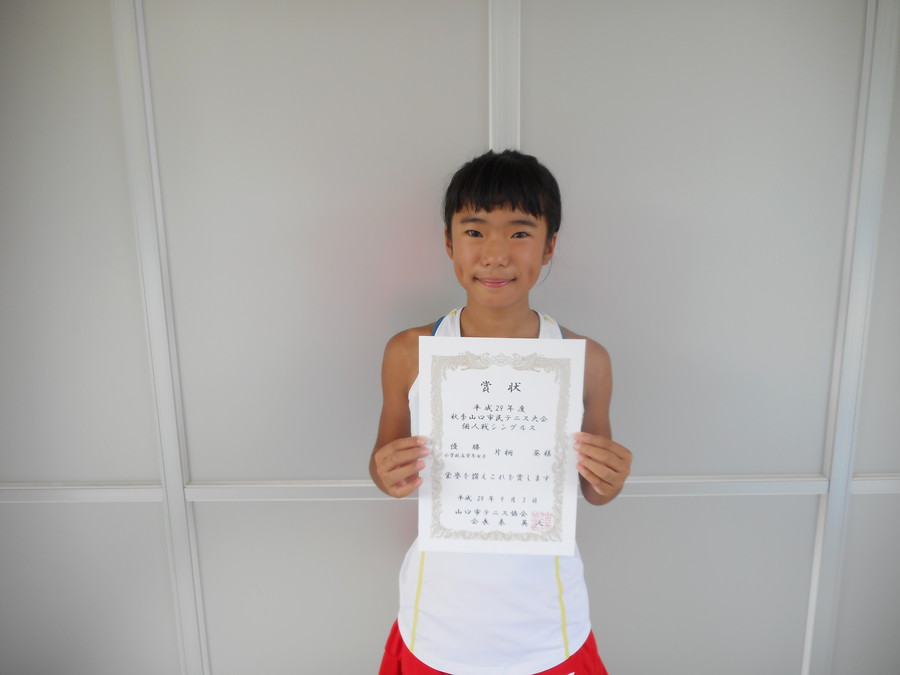 賞状
平成29年度
秋季山口市民テニス大会
個人戦シングルス
優勝
小学校高学年女子
片桐 葵様
栄誉を讃えこれを賞します
平成29年9月3日
山口市テニス協会
会長